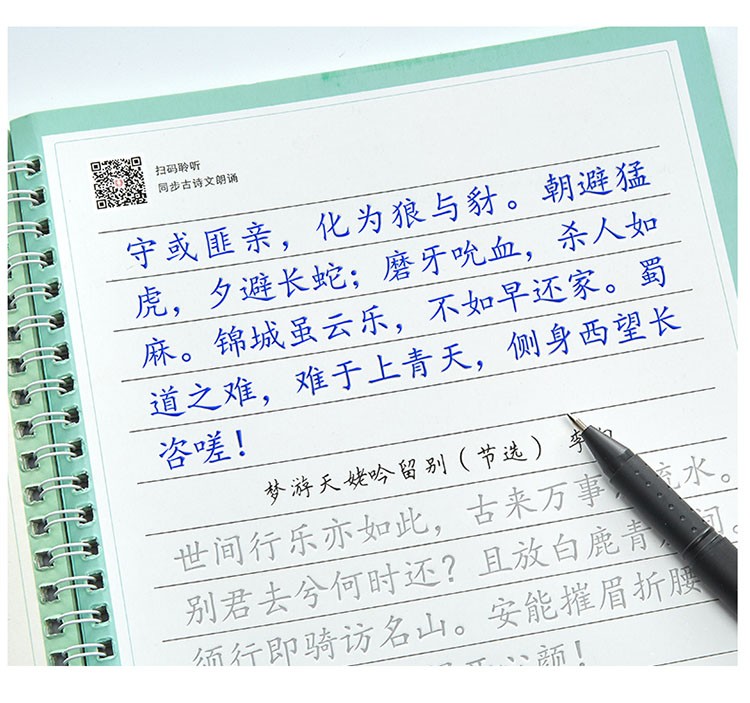 扫码聆听
同步古诗文朗诵
守或匪亲，化为狼与豺。朝避猛
虎，夕避长蛇；磨牙吮血，杀人如
麻。锦城虽云乐，不如早还家。蜀
道之难，难于上青天，侧身西望长
咨嗟！
梦游天姥吟留别（节选） 李白
世间行乐亦如此，古来万事 流水。
别君去兮何时还？且放白鹿青 间。
须行即骑访名山。安能摧眉折腰
颜！